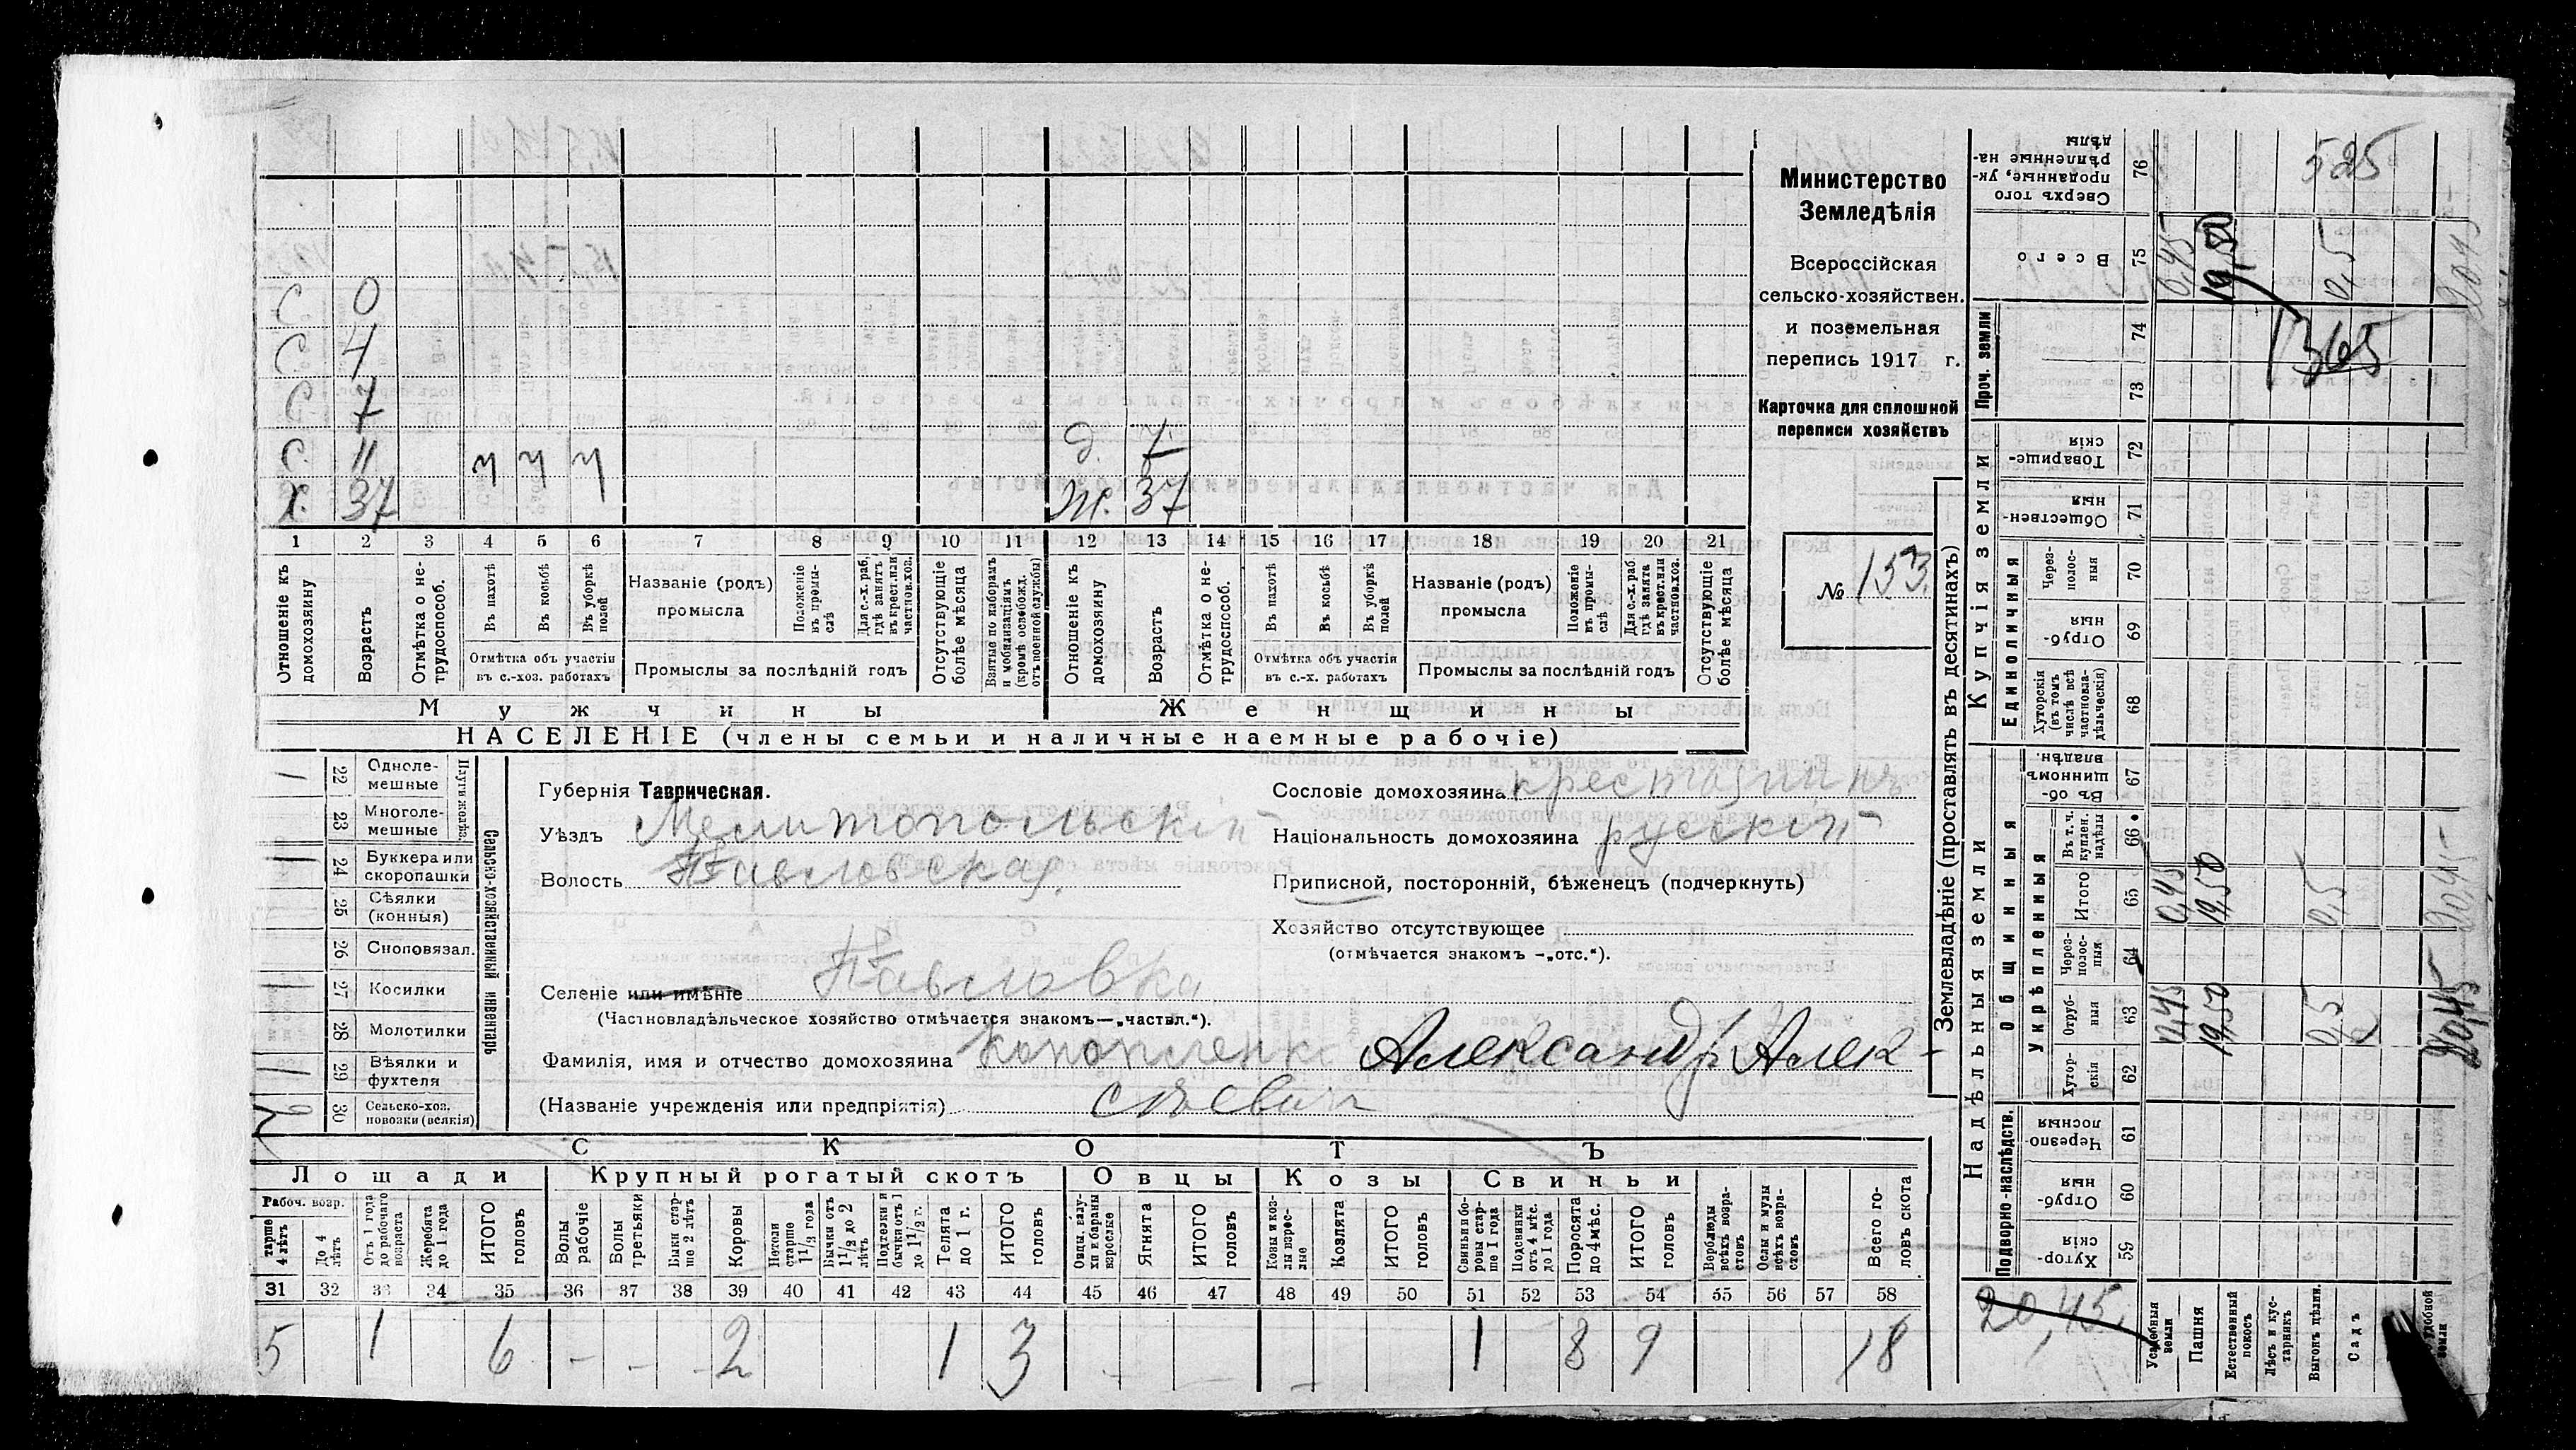 Министерство
Земледѣлія
Всероссійская
сельско-хозяйствен.
и поземельная
перепись 1917 г.
Карточка для сплошной
переписи хозяйствъ
№ 153.
С 0
С 4
С 7
С. 11 ч ч ч д. 7
Х. 37 Ж. 37
1 2 3 4 5 6 7 8 9 10 11 12 13 14 15 16 17 18 19 20 21
Отношеніе къ домохозяину
Возрастъ
Отмѣтка о не-трудоспособ.
Въ пахотѣ
Въ косьбѣ
Въ уборкѣ полей
Отмѣтка объ участіи
въ с.-хоз. работахъ
Названіе (родъ)
промысла
Положеніе въ промы-слѣ
Для с.-х. раб. гдѣ занятъ въ крест. или частнов. хоз.
Промыслы за послѣдній годъ
Отсутствующіе болѣе мѣсяца
Взятые по наборамъ и мобилизаціямъ (кромѣ освобожд. отъ военной службы)
Отношеніе къ домохозяину
Возрастъ
Отмѣтка о не-трудоспособ.
Въ пахотѣ
Въ косьбѣ
Въ уборкѣ полей
Отмѣтка объ участіи
въ с.-х. работахъ
Названіе (родъ)
промысла
Положеніе въ промы-слѣ
Для с.-х. раб. гдѣ занята въ крест. или частнов. хоз.
Промыслы за послѣдній годъ
Отсутствующіе болѣе мѣсяца
Мужчины Женщины
НАСЕЛЕНІЕ (члены семьи и наличные наемные рабочіе)
Сельско-хозяйственный инвентарь
22 Одноле-мешные 1
23 Многоле-мешные
24 Буккера или скоропашки 1
25 Сѣялки (конныя)
26 Сноповязал.
27 Косилки 1
28 Молотилки
29 Вѣялки и фухтеля 1
30 Сельско-хоз. повозки (всякія)
Губернія Таврическая.
Уѣздъ Мелитопольскій
Волость Павловская
Селеніе или имѣніе Павловка
(Частновладѣльческое хозяйство отмѣчается знакомъ—„частвл.“).
Фамилія, имя и отчество домохозяина Александръ Алек-
(Названіе учрежденія или предпріятія) сѣевич
Сословіе домохозяина крестьянинъ
Національность домохозяина русскій
Приписной, посторонній, бѣженецъ (подчеркнуть)
Хозяйство отсутствующее
(отмѣчается знакомъ —„отс.“).
СКОТЪ
Лошади Крупный рогатый скотъ Овцы Козы Свиньи
Рабоч. возр.
тарше 4 лѣтъ
До 4 лѣтъ
Отъ 1 года до рабочаго возраста
Жеребята до 1 года
ИТОГО головъ
Волы рабочіе
Волы третьяки
Быки стар-ше 2 лѣтъ
Коровы
Нетели старше 1½ года
Бычки отъ 1½ до 2 лѣтъ
Подтелки и бычки отъ 1 до 1½ г.
Телята до 1 г.
ИТОГО головъ
Овцы, валу-хи и бараны взрослые
Ягнята
ИТОГО головъ
Козы и коз-лы взрос-лые
Козлята
ИТОГО головъ
Свиньи и бо-ровы стар-ше 1 года
Подсвинки отъ 4 мѣс. до 1 года
Поросята до 4 мѣс.
ИТОГО головъ
Верблюды всѣхъ возра-стовъ
Ослы и мулы всѣхъ возра-стовъ
Всего го-ловъ скота
31 32 33 34 35 36 37 38 39 40 41 42 43 44 45 46 47 48 49 50 51 52 53 54 55 56 57 58
5 1 6 – – – 2 1 3 – – – 1 8 9 18
Землевладѣніе (проставлять въ десятинахъ)
Надѣльныя земли Купчія земли Проч. земли
Подворно-наслѣдств.
Общинныя
Укрѣпленныя
Единоличныя
Хутор-скія 59
Отруб-ныя 60
Черезпо-лосныя 61
Хутор-скія 62
Отруб-ныя 63
Через-полос-ныя 64
Итого 65
Въ т. ч. куплен. надѣлы 66
Въ об-щинномъ владѣн. 67
Хуторскія (въ томъ числѣ всѣ частновла-дѣльческія) 68
Отруб-ныя 69
Через-полос-ныя 70
Обществен-ныя 71
Товарище-скія 72
73
74
Всего 75
Сверхъ того проданные, ук-рѣпленные на-дѣлы 76
20,45.
Усадебныя земли 0,45 0,45 0,45
Пашня 19,50 19,50 19,50
Естественный покосъ
Лѣсъ и кус-тарникъ
Выгонъ цѣлин. 0,5 0,5 0,5
Садъ
удобной земли 20,45 20,45 20,45
525
1365